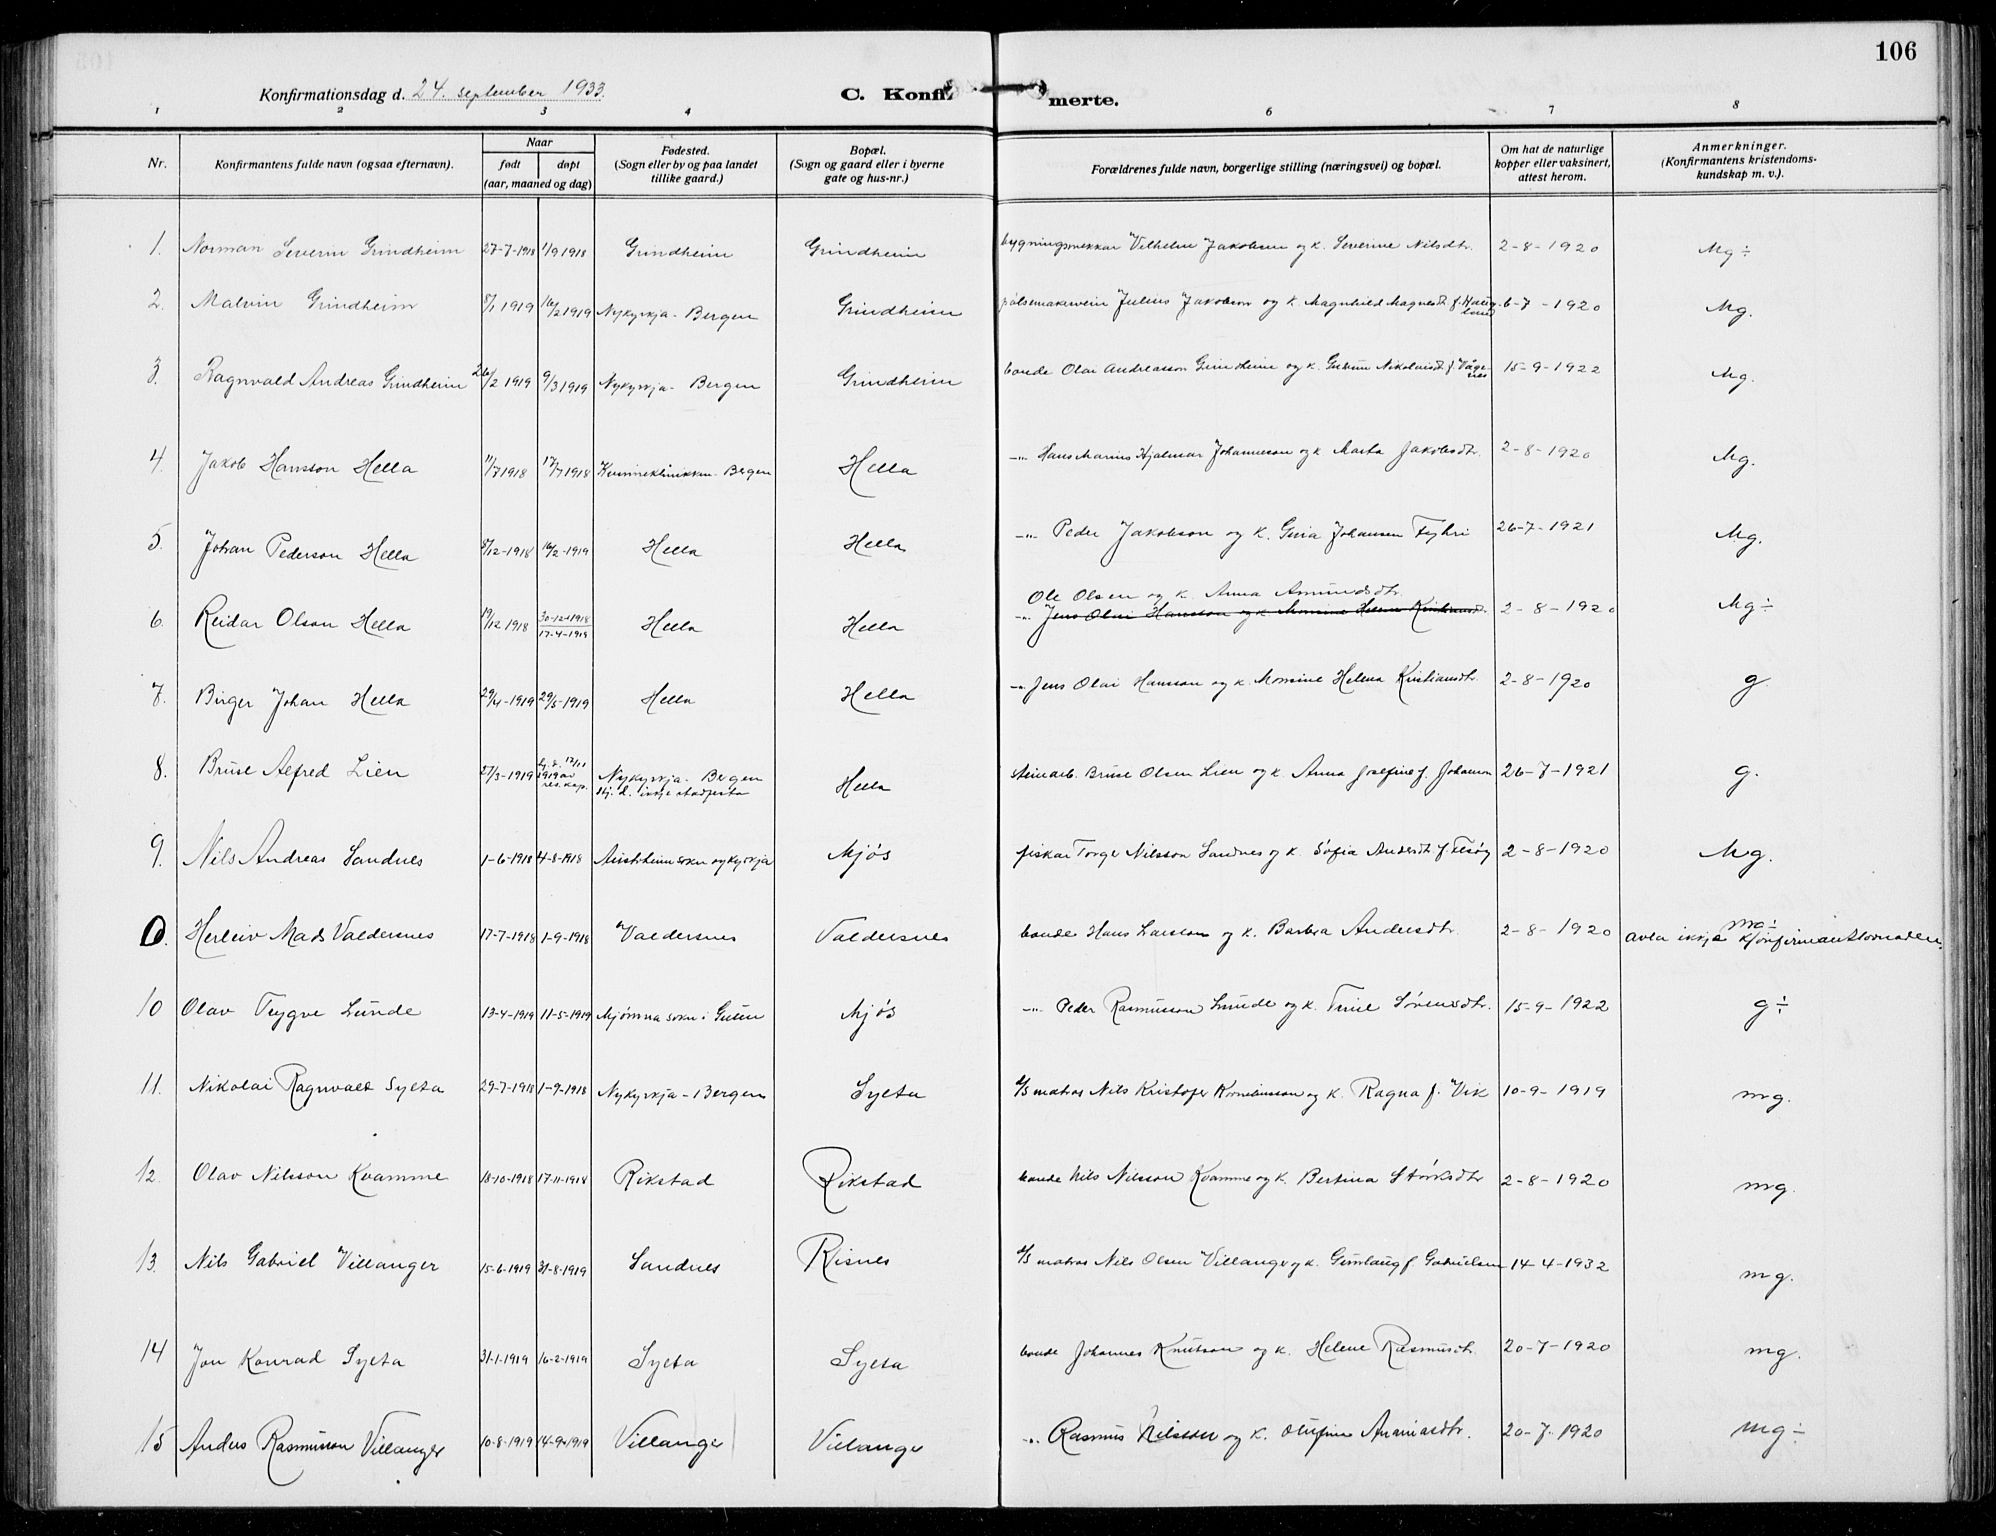 106
Konfirmationsdag d. 24. september 1933.
C. Konfirmerte.
1 2 3 4 6 7 8
Nr. Konfirmantens fulde navn (ogsaa efternavn). Naar født døpt (aar, maaned og dag) Fødested. (Sogn eller by og paa landet tillike gaard.) Bopæl. (Sogn og gaard eller i byerne gate og hus-nr.) Forældrenes fulde navn, borgerlige stilling (næringsvei) og bopæl. Om hat de naturlige kopper eller vaksinert, attest herom. Anmerkninger. (Konfirmantens kristendomskundskap m. v.).
1. Norman Severin Grindheim 27-7-1918 1/9 1918 Grindheim Grindheim bygningsmekkar Vilhelm Jakobsen og k. Severine Nilsdtr. 2-8-1920 Mg÷
2. Malvin Grindheim 8/1 1919 16/2 1919 Nykyrkja - Bergen Grindheim Julius Jakobson og k. Magnhild Magnesdt. f. Haugland 6-7-1920 Mg.
3. Ragnvald Andreas Grindheim 26/2 1919 9/3 1919 Nykyrkja - Bergen Grindheim bonde Olai Andreasson Grindheim og k. Nikolaisdt. f. Vågenes 15-9-1922 Mg.
4. Jakob Hansson Hella 11/7 1918 17/7 1918 Kvinneklinikken - Bergen Hella -"- Hans Marius Hjalmar Johannesson og k. Marta Jakobsdtr. 2-8-1920 Mg.
5. Johan Pederson Hella 8/12-1918 16/2-1919 Hella Hella -"- Peder Jakobson og k. Gina Johansen Fyhri 26-7-1921 Mg.
Ole Olsen og k. Anna Amundsdtr.
6. Reidar Olson Hella 19/12 1918 30-12-1918 17-4-1919 Hella Hella -"- Jens Olai Hansson og k. Monsine Helena Kristiansdt. 2-8-1920 Mg÷
7. Birger Johan Hella 29/4-1919 29/5-1919 Hella Hella -"- Jens Olai Hansson og k. Monsine Helena Kristiansdtr. 2-8-1920 g.
8. Bruse Alfred Lien 27/3-1919 hj. d. 12/11 1919 av res. kap. Nykyrkja - Bergen Hj. d. ikkje stadfesta Hella steinarb. Bruse Olsen Lien og k. Anna Josefine f. Johanson 26-7-1921 g.
9. Nils Andreas Sandnes 1-6-1918 4-8-1918 Austrheim sokn og kyrkja Mjøs fiskar Torger Nilsson Sandnes og k. Sofia Andersdt. 2-8-1920 Mg.
0. Herleiv Mads Valdersnes 17-7-1918 1-9-1918 Valdersnes Valdersnes bonde Hans Larsson og k. Barbra Andersdtr. 2-8-1920 mg÷ avla ikkje konfirmantlovnaden.
10 Olav Trygve Lunde 13-4-1919 11-5-1919 Mjømna sokn i Gulen Mjøs -"- Peder Rasmusson Lunde og k. Trine Sørensdtr. 15-9-1922 g÷
11. Nikolai Ragnvald Syslta 29-7-1918 1-9-1918 Nykyrkja - Bergen Sylta d/s matros Nils Kristofer Kornelinsson og k. Ragna f. Vik 10-9-1919 mg.
12. Olav Nilsson Kvamme 18-10-1918 17-11-1918 Rikstad Rikstad bonde Nils Nilsson Kvamme og k. Bertina Størksdtr 2-8-1920 mg.
13. Nils Gabriel Villanger 15-6-1919 31-8-1919 Sandnes Risnes d/s matros Nils Olsen Villanger og k. Gunlaug f. Gabrielsen 14-4-1932 mg.
14 Jon Konrad Sylta 31-1-1919 16-2-1919 Sylta Sylta bonde Johannes Knutson og k. Helene Rasmusdtr. 20-7-1920 mg.
15 Anders Rasmusson Villanger 10-8-1919 14-9-1919 Villanger Villanger -"- Rasmus Nilsson og k. Olufine Ananiasdtr. 20-7-1920 mg÷